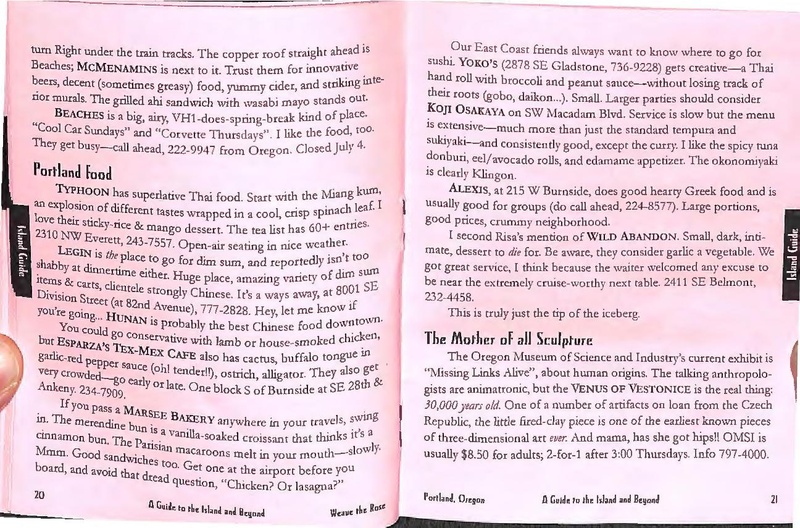 turn Right under the train tracks. The copper roof straight ahead is
Beaches; MCMENAMINS is next to it. Trust them for innovative
beers, decent (sometimes greasy) food, yummy cider, and striking inte-
rior murals. The grilled ahi sandwich with wasabi mayo stands out.
BEACHES is a big, airy, VH1-does-spring-break kind of place.
"Cool Car Sundays" and "Corvette Thursdays". I like the food, too.
They get busy—call ahead, 222-9947 from Oregon. Closed July 4.
Portland Food
TYPHOON has superlative Thai food. Start with the Miang kum,
an explosion of different tastes wrapped in a cool, crisp spinach leaf. I
love their sticky-rice & mango dessert. The tea list has 60+ entries.
2310 NW Everett, 243-7557. Open-air seating in nice weather.
LEGIN is the place to go for dim sum, and reportedly isn't too
shabby at dinnertime either. Huge place, amazing variety of dim sum
items & carts, clientele strongly Chinese. It's a ways away, at 8001 SE
Division Street (at 82nd Avenue), 777-2828. Hey, let me know if
you're going... HUNAN is probably the best Chinese food downtown.
You could go conservative with lamb or house-smoked chicken,
but ESPARZA'S TEX-MEX CAFE also has cactus, buffalo tongue in
garlic-red pepper sauce (oh! tender!!), ostrich, alligator. They also get
very crowded—go early or late. One block S of Burnside at SE 28th &
Ankeny. 234-7909.
If you pass a MARSEE BAKERY anywhere in your travels, swing
in. The merendine bun is a vanilla-soaked croissant that thinks it's a
cinnamon bun. The Parisian macaroons melt in your mouth—slowly.
Mmm. Good sandwiches too. Get one at the airport before you
board, and avoid that dread question, "Chicken? Or lasagna?"
20
A Guide to the Island and Beyond
Weave the Rose
Island Guide
Our East Coast friends always want to know where to go for
sushi. YOKO'S (2878 SE Gladstone, 736-9228) gets creative—a Thai
hand roll with broccoli and peanut sauce—without losing track of
their roots (gobo, daikon...). Small. Larger parties should consider
KOJI OSAKAYA on SW Macadam Blvd. Service is slow but the menu
is extensive—much more than just the standard tempura and
sukiyaki—and consistently good, except the curry. I like the spicy tuna
donburi, eel/avocado rolls, and edamame appetizer. The okonomiyaki
is clearly Klingon.
ALEXIS, at 215 W Burnside, does good hearty Greek food and is
usually good for groups (do call ahead, 224-8577). Large portions,
good prices, crummy neighborhood.
I second Risa's mention of WILD ABANDON. Small, dark, inti-
mate, dessert to die for. Be aware, they consider garlic a vegetable. We
got great service, I think because the waiter welcomed any excuse to
be near the extremely cruise-worthy next table. 2411 SE Belmont,
232-4458.
This is truly just the tip of the iceberg.
The Mother of all Sculpture
The Oregon Museum of Science and Industry's current exhibit is
"Missing Links Alive", about human origins. The talking anthropolo-
gists are animatronic, but the VENUS OF VESTONICE is the real thing:
30,000 years old. One of a number of artifacts on loan from the Czech
Republic, the little fired-clay piece is one of the earliest known pieces
of three-dimensional art ever. And mama, has she got hips!! OMSI is
usually $8.50 for adults; 2-for-1 after 3:00 Thursdays. Info 797-4000.
Portland, Oregon
A Guide to the Island and Beyond
21
Island Guide